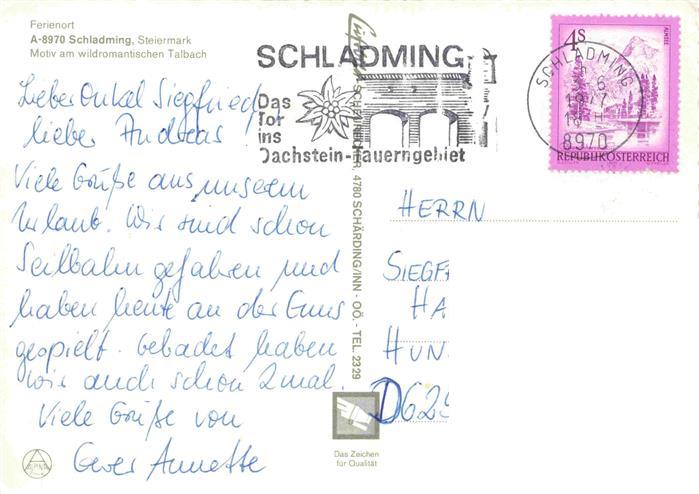 Ferienort
A-8970 Schladming, Steiermark
Motiv am wildromantischen Talbach
Lieber Onkel Siegfried,
lieber Andreas,
Viele Grüße aus unserem
Urlaub. Wir sind schon
Seilbahn gefahren und
haben heute an der Enns
gespielt. Gebadet haben
wir auch schon 2mal.
Viele Grüße von
Annette
ALPINA
SCHLADMING
Das
Tor
ins
Dachstein-Tauerngebiet
4780 SCHÄRDING/INN - OÖ. - TEL. 2329
Das Zeichen
für Qualität
4S
ALMSEE
REPUBLIK ÖSTERREICH
SCHLADMING
8970
HERRN
SIEGF
HA
HUN
D625